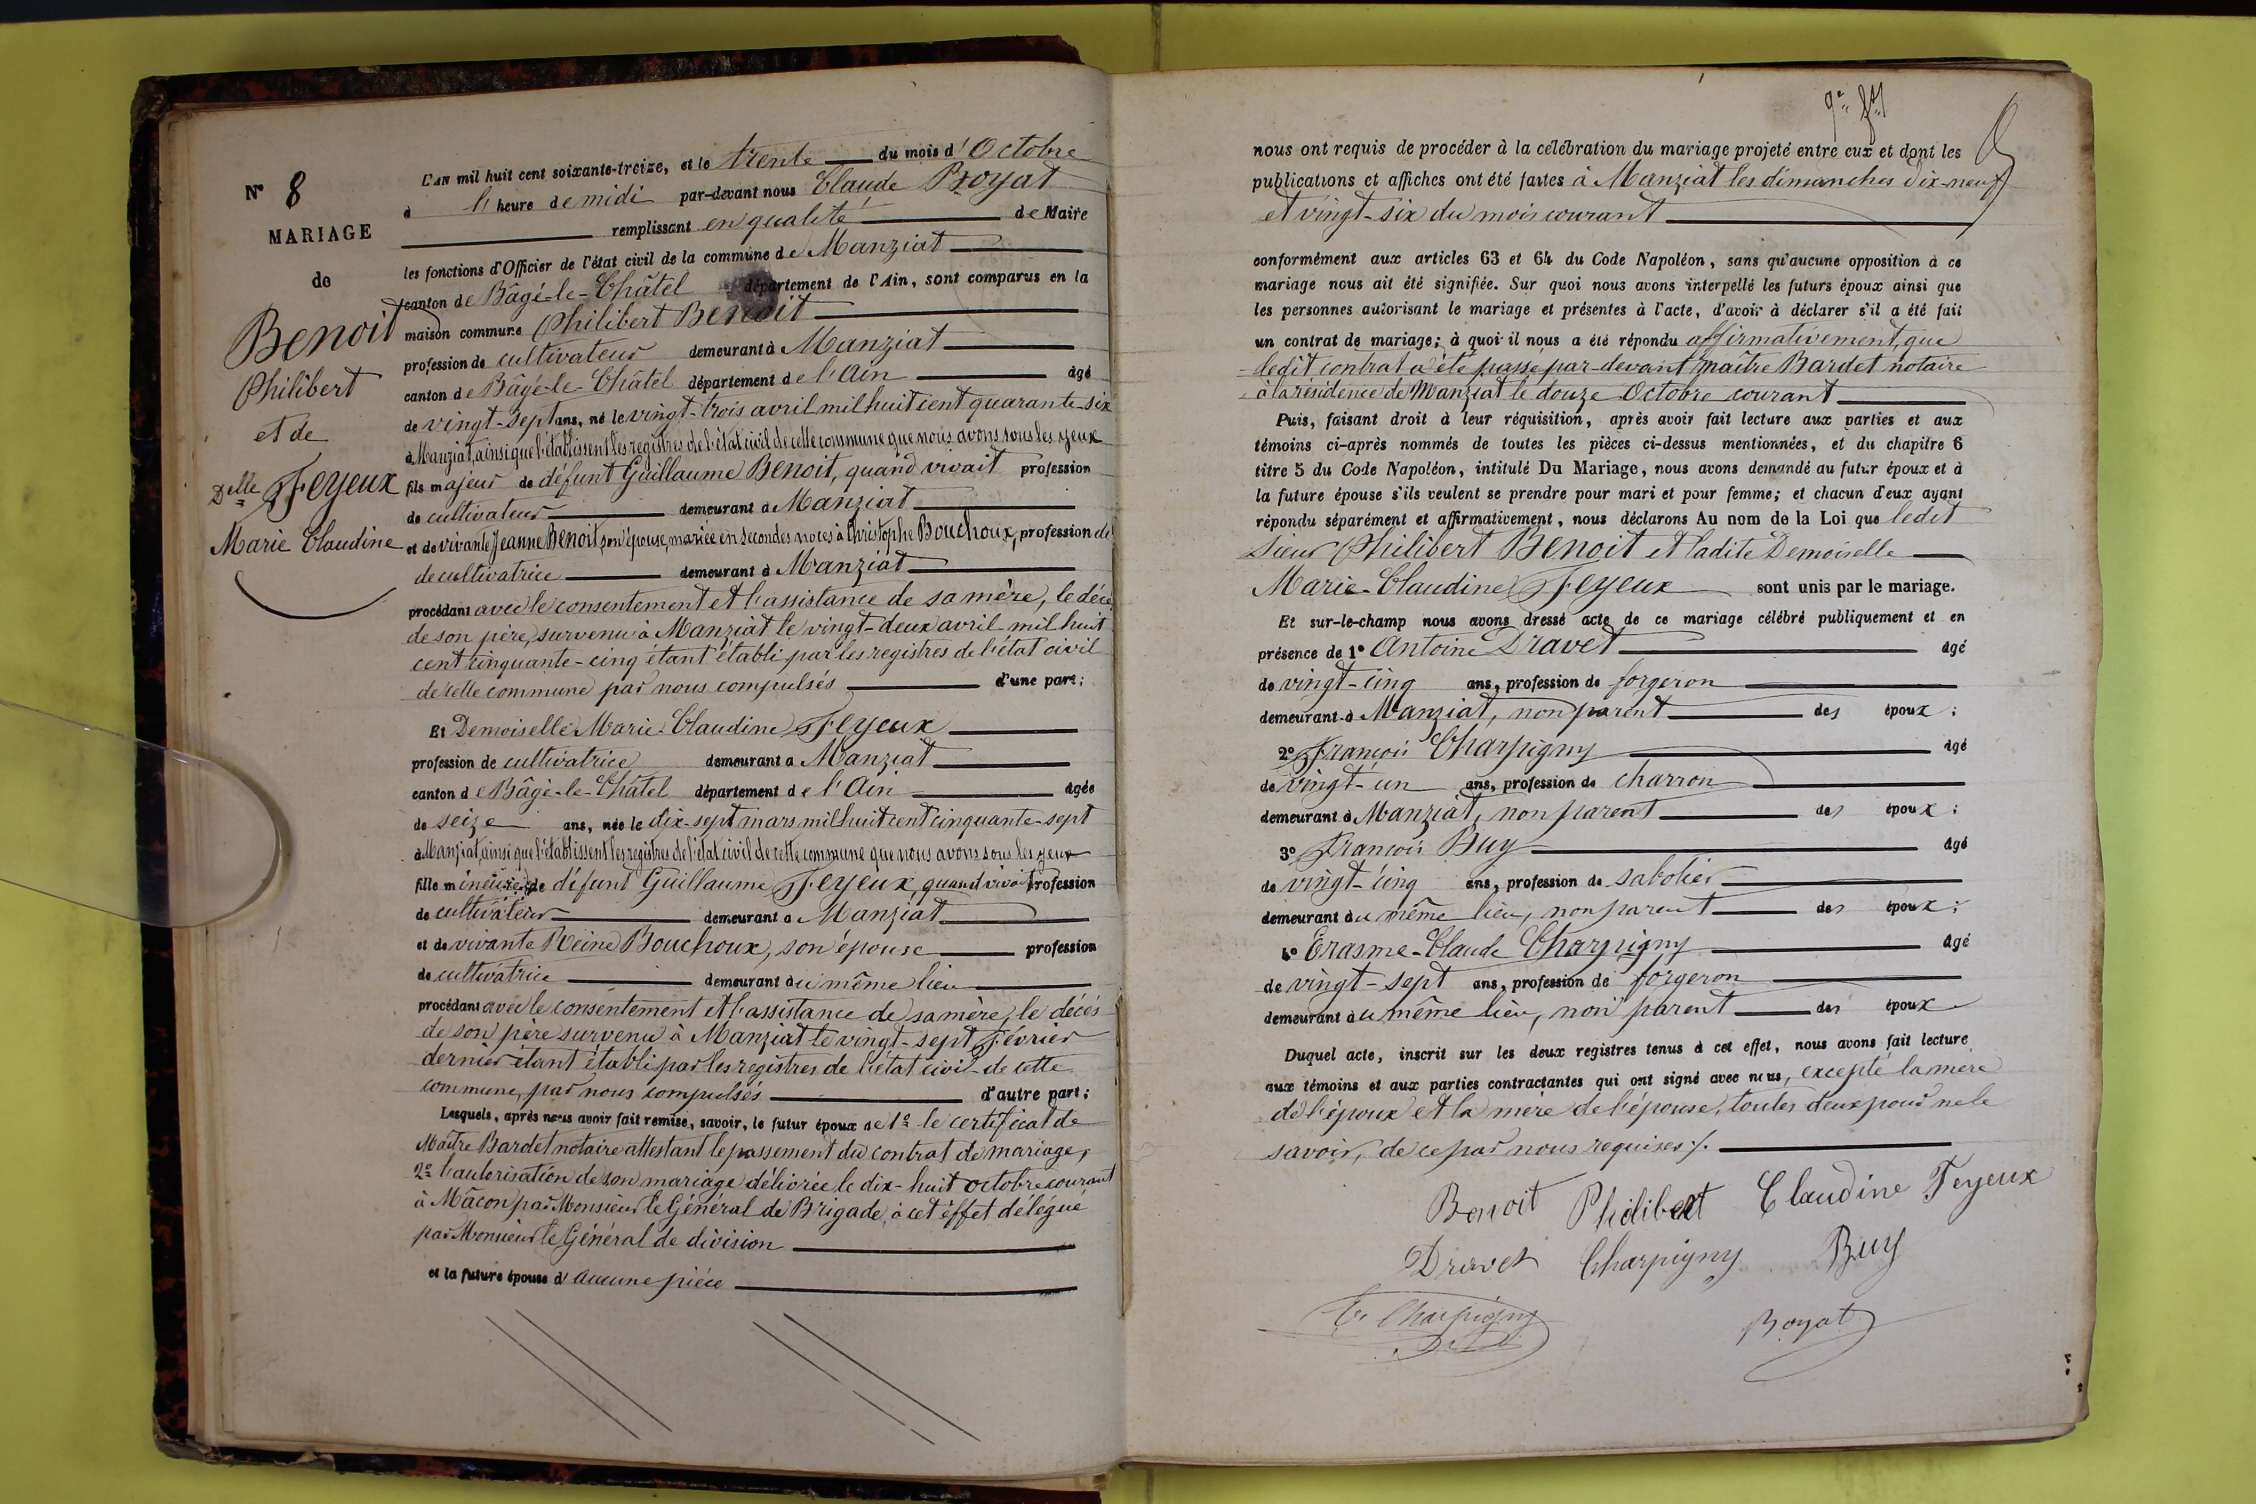 N° 8
MARIAGE
de
Benoit
Philibert
et de
Delle Feyeux
Marie Claudine
L'AN mil huit cent soixante-treize, et le trente du mois d'Octobre
à l'heure de midi par-devant nous Claude Boyat
remplissant en qualité de Maire
les fonctions d'Officier de l'état civil de la commune de Manziat
canton de Bâgé-le-Châtel département de l'Ain, sont comparus en la
maison commune Philibert Benoit
profession de cultivateur demeurant à Manziat
canton de Bâgé-le-Châtel département de l'Ain âgé
de vingt-sept ans, né le vingt-trois avril mil huit cent quarante-six
à Manziat, ainsi que l'établissent les registres de l'état civil de cette commune que nous avons sous les yeux
fils majeur de défunt Guillaume Benoit, quand vivait profession
de cultivateur demeurant à Manziat
et de vivante Jeanne Benoit, son épouse, mariée en secondes noces à Christophe Bouchoux, profession de
de cultivatrice demeurant à Manziat
procédant avec le consentement et l'assistance de sa mère, le décès
de son père, survenu à Manziat le vingt-deux avril mil huit
cent cinquante-cinq étant établi par les registres de l'état civil
de cette commune par nous compulsés d'une part;
Et Demoiselle Marie-Claudine Feyeux
profession de cultivatrice demeurant à Manziat
canton de Bâgé-le-Châtel département de l'Ain âgée
de seize ans, née le dix-sept mars mil huit cent cinquante-sept
à Manziat, ainsi que l'établissent les registres de l'état civil de cette commune que nous avons sous les yeux
fille mineure de défunt Guillaume Feyeux, quand vivait profession
de cultivateur demeurant à Manziat
et de vivante Reine Bouchoux, son épouse profession
de cultivatrice demeurant au même lieu
procédant avec le consentement et l'assistance de sa mère, le décès
de son père survenu à Manziat le vingt-sept Février
dernier étant établi par les registres de l'état civil de cette
commune, par nous compulsés d'autre part;
Lesquels, après nous avoir fait remise, savoir, le futur époux de 1° le certificat de
Maître Bardet notaire attestant le passement du contrat de mariage,
2° l'autorisation de son mariage délivrée le dix-huit octobre courant
à Mâcon par Monsieur le Général de Brigade, à cet effet délégué
par Monsieur le Général de division
et la future épouse d'aucune pièce
nous ont requis de procéder à la célébration du mariage projeté entre eux et dont les
publications et affiches ont été faites à Manziat les dimanches dix-neuf
et vingt-six du mois courant
conformément aux articles 63 et 64 du Code Napoléon, sans qu'aucune opposition à ce
mariage nous ait été signifiée. Sur quoi nous avons interpellé les futurs époux ainsi que
les personnes autorisant le mariage et présentes à l'acte, d'avoir à déclarer s'il a été fait
un contrat de mariage; à quoi il nous a été répondu affirmativement, que
ledit contrat a été passé par-devant maître Bardet notaire
à la résidence de Manziat le douze Octobre courant
Puis, faisant droit à leur réquisition, après avoir fait lecture aux parties et aux
témoins ci-après nommés de toutes les pièces ci-dessus mentionnées, et du chapitre 6
titre 5 du Code Napoléon, intitulé Du Mariage, nous avons demandé au futur époux et à
la future épouse s'ils veulent se prendre pour mari et pour femme; et chacun d'eux ayant
répondu séparément et affirmativement, nous déclarons Au nom de la Loi que ledit
sieur Philibert Benoit et ladite Demoiselle
Marie-Claudine Feyeux sont unis par le mariage.
Et sur-le-champ nous avons dressé acte de ce mariage célébré publiquement et en
présence de 1° Antoine Dravet âgé
de vingt-cinq ans, profession de forgeron
demeurant à Manziat, non parent des époux;
2° François Charpigny âgé
de vingt-un ans, profession de charron
demeurant à Manziat, non parent des époux;
3° François Buy âgé
de vingt-cinq ans, profession de sabotier
demeurant au même lieu, non parent des époux;
4° Erasme-Claude Charpigny âgé
de vingt-sept ans, profession de forgeron
demeurant au même lieu, non parent des époux
Duquel acte, inscrit sur les deux registres tenus à cet effet, nous avons fait lecture
aux témoins et aux parties contractantes qui ont signé avec nous, excepté la mère
de l'époux et la mère de l'épouse, toutes deux pour ne le
savoir, de ce par nous requises ./.
Benoit Philibert Claudine Feyeux
Dravet Charpigny Buy
Charpigny Boyat